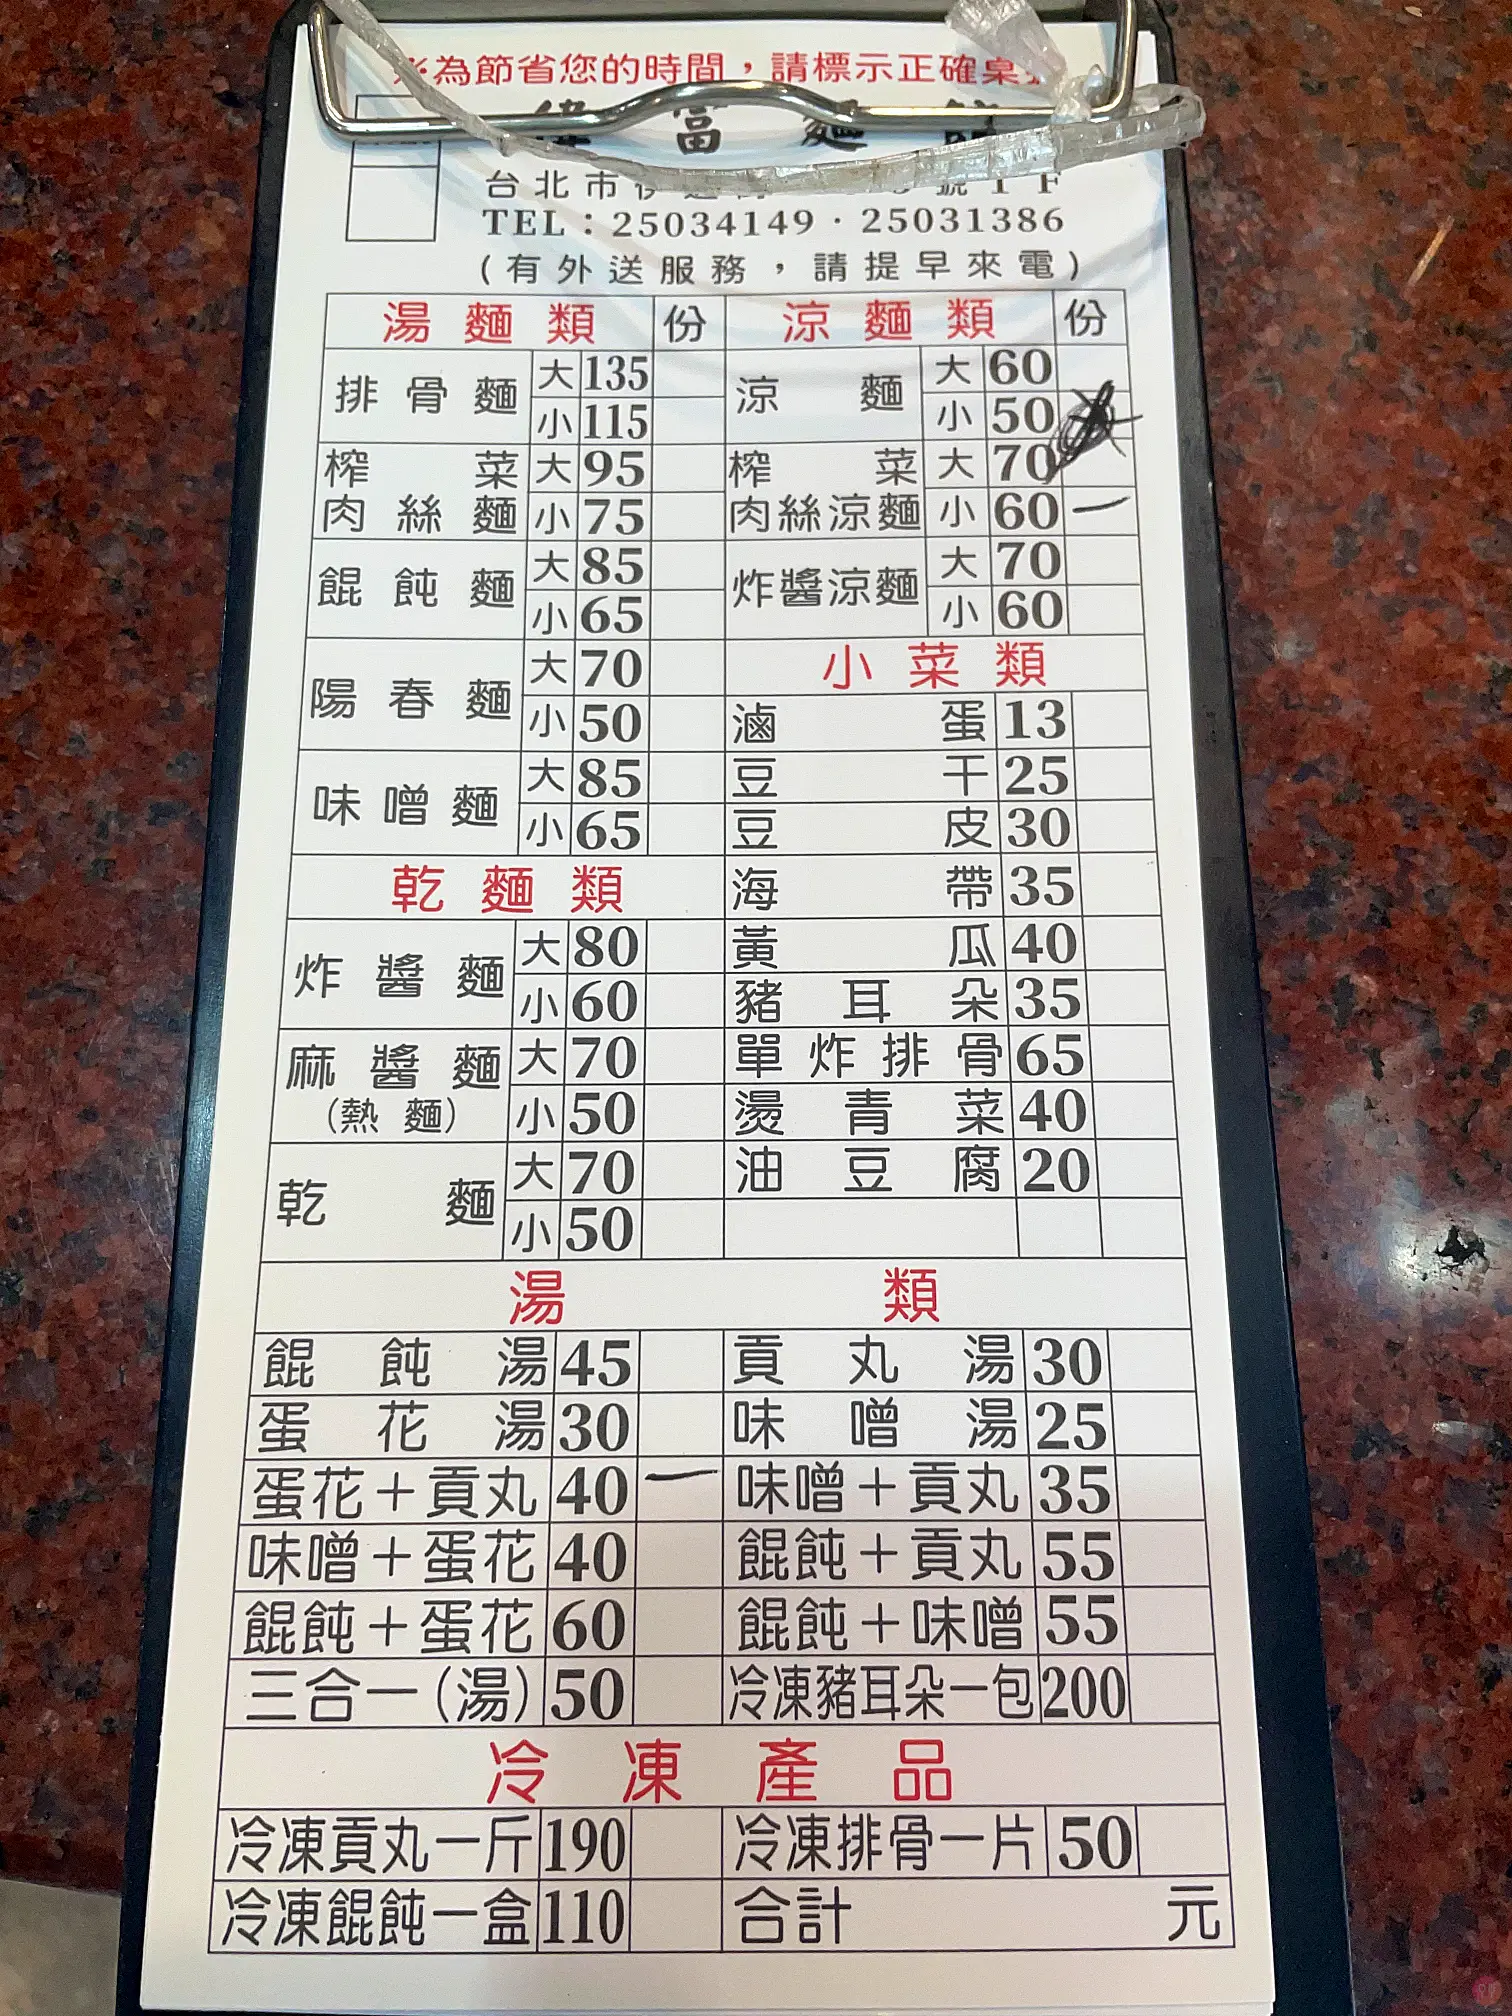 ※為節省您的時間，請標示正確桌
富麵館
台北市伊
TEL：25034149・25031386
(有外送服務，請提早來電)
湯麵類 份 涼麵類 份
排骨麵 大 135 涼麵 大 60
小 115 小 50
榨菜肉絲麵 大 95 榨菜肉絲涼麵 大 70
小 75 小 60 一
餛飩麵 大 85 炸醬涼麵 大 70
小 65 小 60
陽春麵 大 70 小菜類
小 50 滷蛋 13
味噌麵 大 85 豆干 25
小 65 豆皮 30
乾麵類 海帶 35
炸醬麵 大 80 黃瓜 40
小 60 豬耳朵 35
麻醬麵 大 70 單炸排骨 65
(熱麵) 小 50 燙青菜 40
乾麵 大 70 油豆腐 20
小 50
湯類
餛飩湯 45 貢丸湯 30
蛋花湯 30 味噌湯 25
蛋花＋貢丸 40 一 味噌＋貢丸 35
味噌＋蛋花 40 餛飩＋貢丸 55
餛飩＋蛋花 60 餛飩＋味噌 55
三合一(湯) 50 冷凍豬耳朵一包 200
冷凍產品
冷凍貢丸一斤 190 冷凍排骨一片 50
冷凍餛飩一盒 110 合計 元